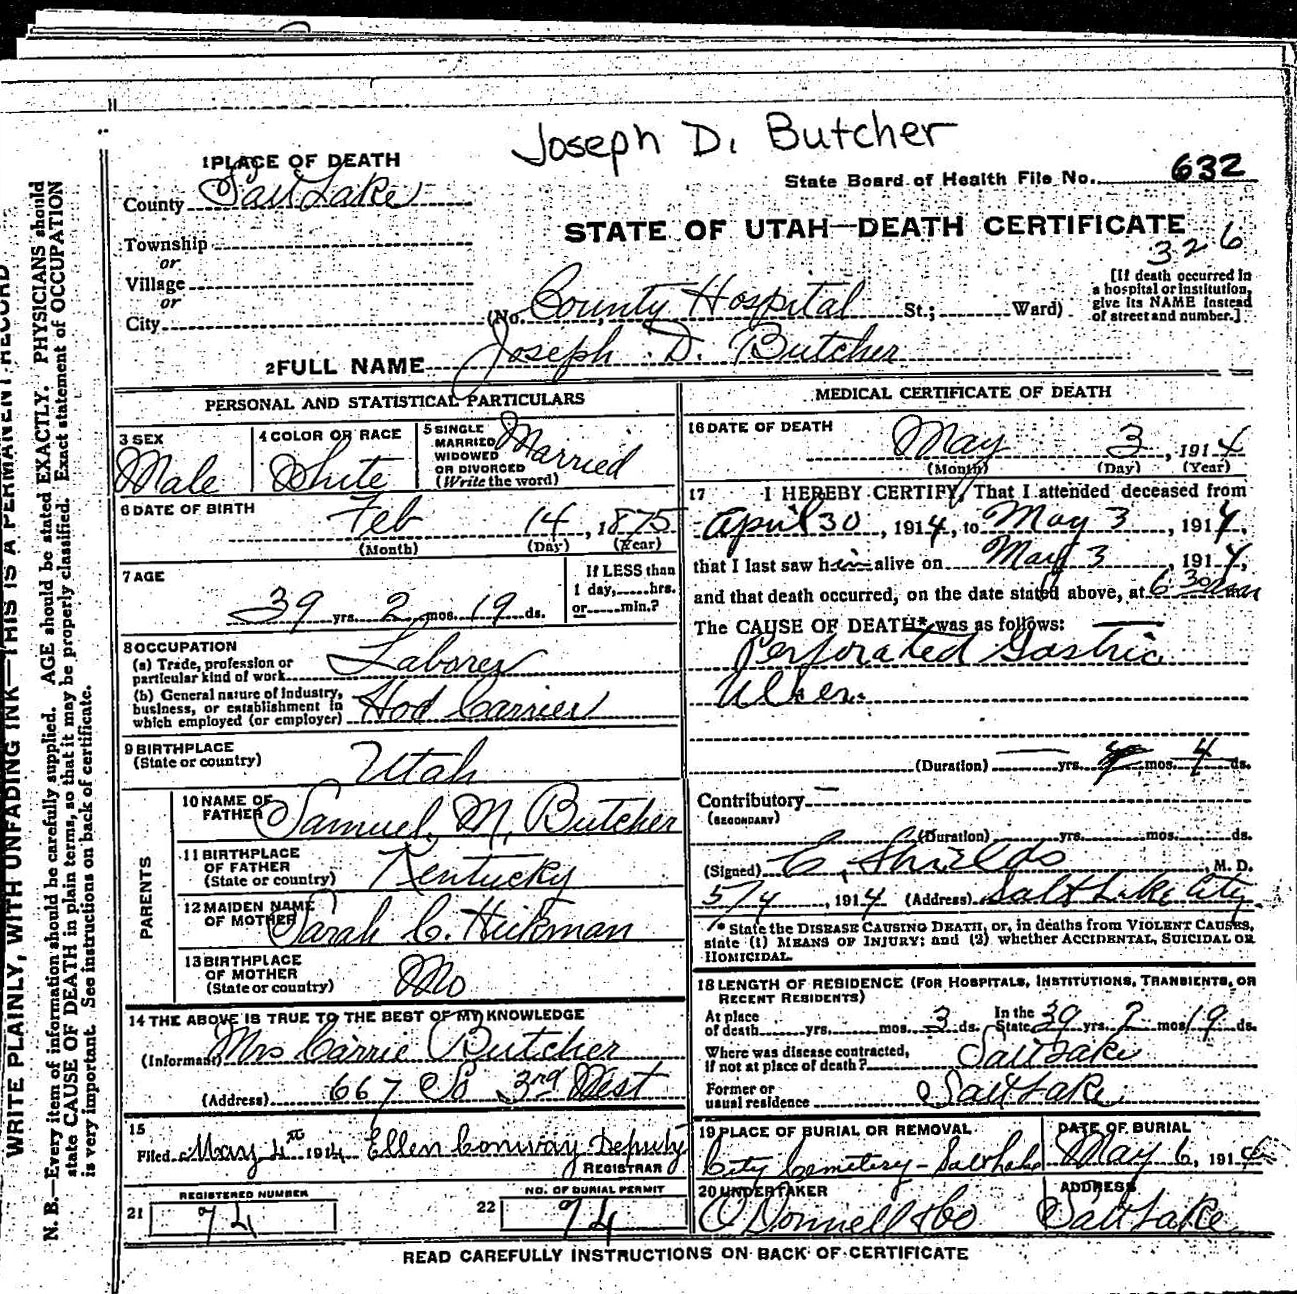 Joseph D. Butcher
1 PLACE OF DEATH
State Board of Health File No. 632
County Salt Lake
STATE OF UTAH—DEATH CERTIFICATE
326
Township
or
Village
or
City (No. County Hospital St.; Ward)
[If death occurred in
a hospital or institution,
give its NAME instead
of street and number.]
2 FULL NAME Joseph D. Butcher
PERSONAL AND STATISTICAL PARTICULARS
3 SEX Male
4 COLOR OR RACE White
5 SINGLE
MARRIED
WIDOWED
OR DIVORCED
(Write the word) Married
6 DATE OF BIRTH Feb 14, 1875
(Month) (Day) (Year)
7 AGE 39 yrs. 2 mos. 19 ds.
If LESS than
1 day,......hrs.
or......min.?
8 OCCUPATION
(a) Trade, profession or
particular kind of work Laborer
(b) General nature of industry,
business, or establishment in
which employed (or employer) Hod Carrier
9 BIRTHPLACE
(State or country) Utah
PARENTS
10 NAME OF
FATHER Samuel M. Butcher
11 BIRTHPLACE
OF FATHER
(State or country) Kentucky
12 MAIDEN NAME
OF MOTHER Sarah C. Hickman
13 BIRTHPLACE
OF MOTHER
(State or country) Mo
14 THE ABOVE IS TRUE TO THE BEST OF MY KNOWLEDGE
(Informant) Mrs Carrie Butcher
(Address) 667 So 3rd West
15
Filed May 4th 1914 Ellen Conway Deputy
REGISTRAR
REGISTERED NUMBER
21 94
NO. OF BURIAL PERMIT
22 94
MEDICAL CERTIFICATE OF DEATH
16 DATE OF DEATH
May 3, 1914
(Month) (Day) (Year)
17 I HEREBY CERTIFY, That I attended deceased from
April 30, 1914, to May 3, 1914,
that I last saw him alive on May 3, 1914,
and that death occurred, on the date stated above, at 6 30 am
The CAUSE OF DEATH* was as follows:
Perforated Gastric
Ulcer.
(Duration) yrs. mos. 4 ds.
Contributory
(SECONDARY)
(Duration) yrs. mos. ds.
(Signed) C. Shields, M. D.
5/4, 1914 (Address) Salt Lake City
* State the DISEASE CAUSING DEATH, or, in deaths from VIOLENT CAUSES,
state (1) MEANS OF INJURY; and (2) whether ACCIDENTAL, SUICIDAL OR
HOMICIDAL.
18 LENGTH OF RESIDENCE (FOR HOSPITALS, INSTITUTIONS, TRANSIENTS, OR
RECENT RESIDENTS)
At place
of death yrs. mos. 3 ds. In the
State 39 yrs. 2 mos 19 ds.
Where was disease contracted,
if not at place of death? Salt Lake
Former or
usual residence Salt Lake
19 PLACE OF BURIAL OR REMOVAL
City Cemetery - Salt Lake
DATE OF BURIAL
May 6, 1914
20 UNDERTAKER
O'Donnell & Co
ADDRESS
Salt Lake
READ CAREFULLY INSTRUCTIONS ON BACK OF CERTIFICATE
WRITE PLAINLY, WITH UNFADING INK—THIS IS A PERMANENT RECORD
N. B.—Every item of information should be carefully supplied. AGE should be stated EXACTLY. PHYSICIANS should
state CAUSE OF DEATH in plain terms, so that it may be properly classified. Exact statement of OCCUPATION
is very important. See instructions on back of certificate.